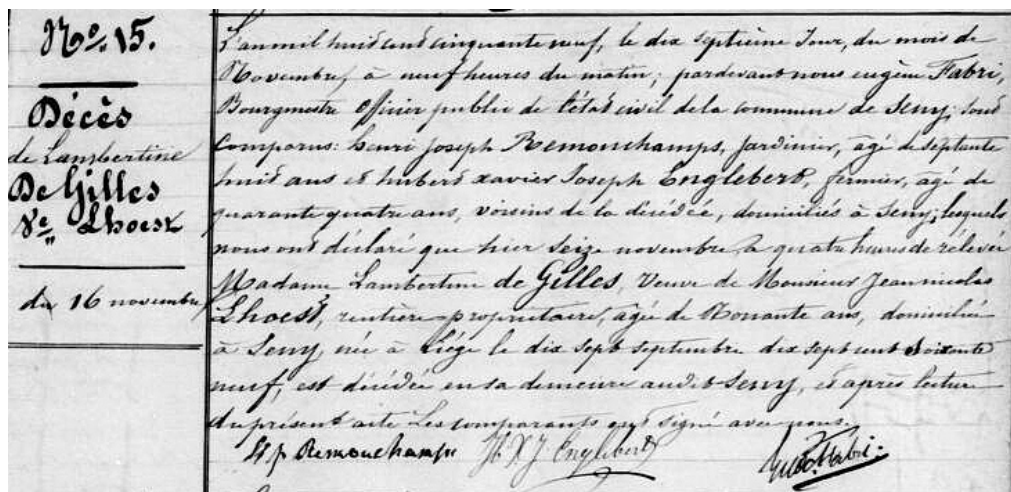 No. 15.
Décès
de Lambertine
De Gilles
Ve Lhoest
du 16 novembre
L'an mil huit cent cinquante neuf, le dix septième Jour, du mois de
Novembre, à neuf heures du matin; pardevant nous eugène Fabri,
Bourgmestre Officier public de l'état civil de la commune de Seny, sont
Comparus: henri joseph Remonchamps, jardinier, agé de septante
huit ans et hubert xavier Joseph Englebert, fermier, agé de
quarante quatre ans, voisins de la décédée, domiciliés à Seny; lesquels
nous ont déclaré que hier seize novembre, à quatre heures de rélevée
Madame Lambertine de Gilles, Veuve de Monsieur Jean nicolas
Lhoest, rentière propriétaire, agée de Nonante ans, domiciliée
à Seny, née à Liége le dix sept septembre dix sept cent soixante
neuf, est décédée en sa demeure audit Seny, et après lecture
du présent acte Les comparants ont signé avec nous.
H j Remonchamps H. X. J. Englebert Fabri